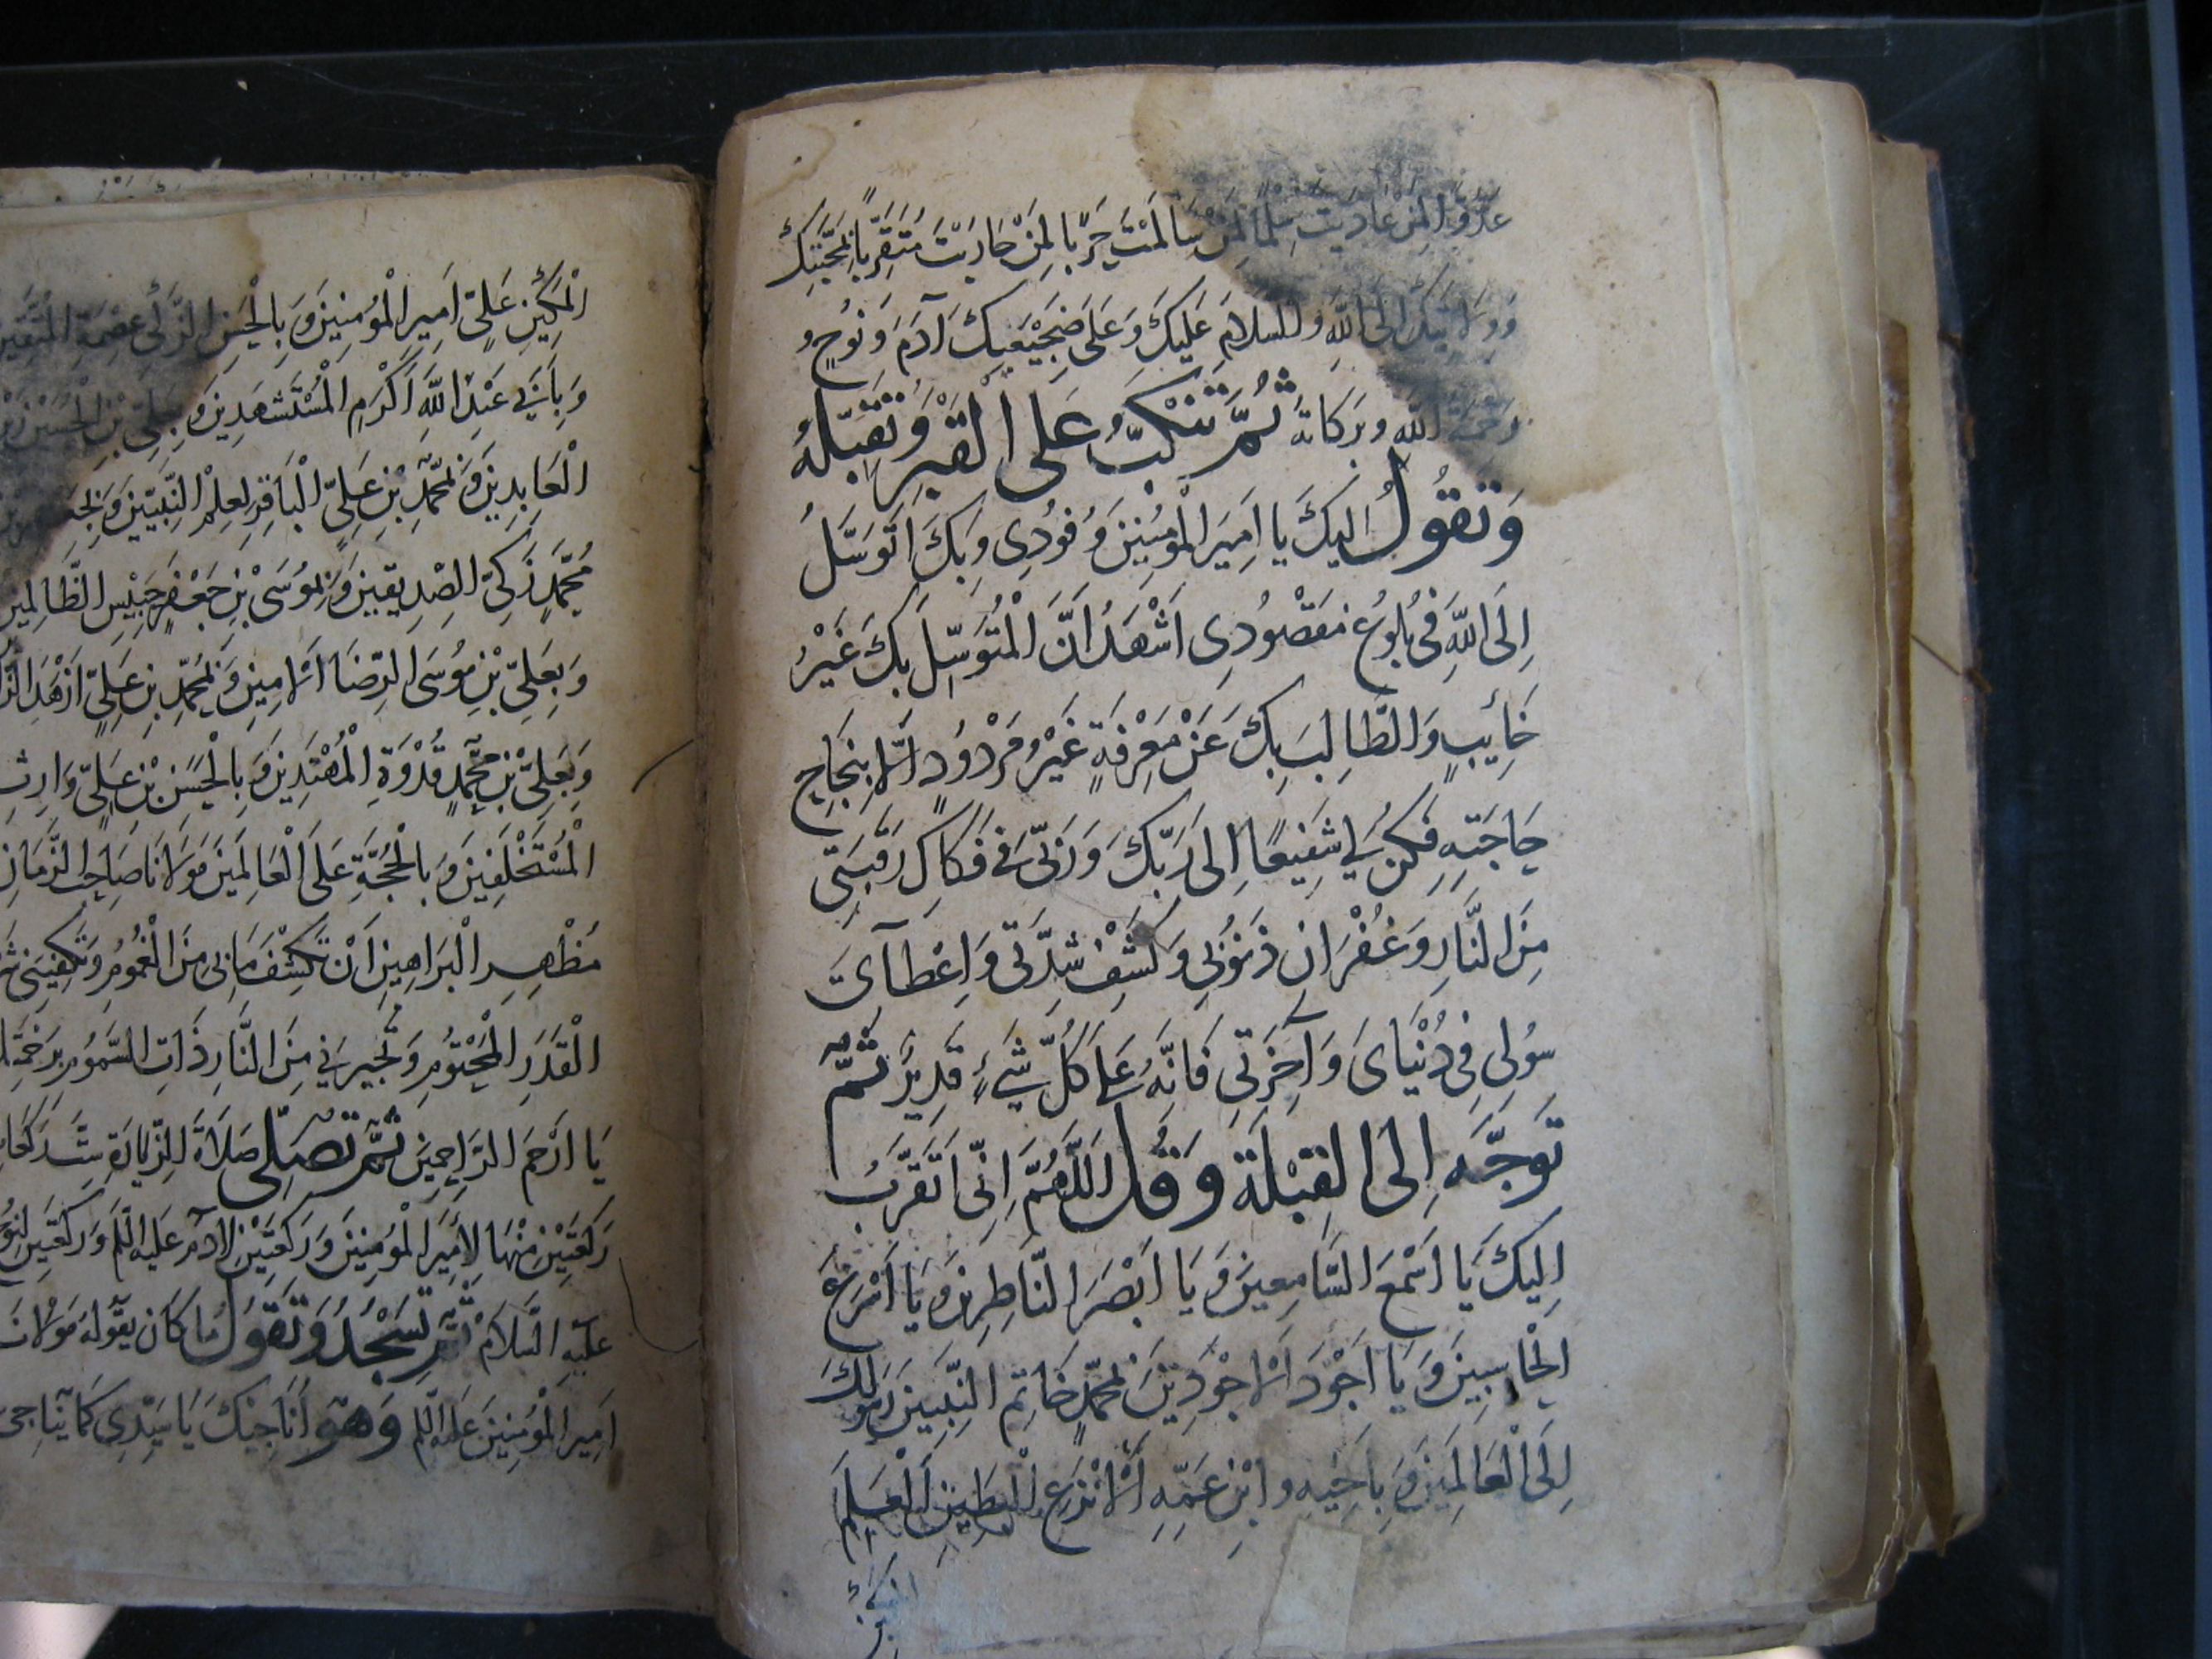 عَدُوًّا لِمَنْ عَادَيْتَ سِلْمًا لِمَنْ سَالَمْتَ حَرْبًا لِمَنْ حَارَبْتَ مُتَقَرِّبًا بِمَحَبَّتِكَ
وَوِلَايَتِكَ اِلَى اللّٰهِ وَالسلَامُ عَلَيْكَ وَعَلَى ضَجِيْعَيْكَ آدَمَ وَنُوحٍ وَ
رَحْمَةُ اللّٰهِ وَبَرَكَاتُهُ ثُمَّ تَنْكَبُّ عَلَى الْقَبْرِ وَتُقَبِّلُهُ
وَتَقُولُ اِلَيْكَ يَا اَمِيرَ الْمُؤْمِنِينَ وُفُودِى وَبِكَ اَتَوَسَّلُ
اِلَى اللّٰهِ فِى بُلُوغِ مَقْصُودِى اَشْهَدُ اَنَّ الْمُتَوَسِّلَ بِكَ غَيْرُ
خَائِبٍ وَالطَّالِبَ بِكَ عَنْ مَعْرِفَةٍ غَيْرُ مَرْدُودٍ اِلَّا بِنَجَاحِ
حَاجَتِهِ فَكُنْ لِي شَفِيعًا اِلَى رَبِّكَ وَرَبِّى فِى فَكَاكِ رَقَبَتِى
مِنَ النَّارِ وَغُفْرَانِ ذُنُوبِى وَكَشْفِ شِدَّتِى وَاِعْطَآئَ
سُولِى فِى دُنْيَاىَ وَآخِرَتِى فَاِنَّهُ عَلَى كُلِّ شَيْءٍ قَدِيرٌ ثُمَّ
تَوَجَّهْ اِلَى الْقِبْلَةِ وَقُلْ اَللّٰهُمَّ اِنِّى اَتَقَرَّبُ
اِلَيْكَ يَا اَسْمَعَ السَّامِعِينَ وَيَا اَبْصَرَ النَّاظِرِينَ وَيَا اَسْرَعَ
الْحَاسِبِينَ وَيَا اَجْوَدَ الْاَجْوَدِينَ بِمُحَمَّدٍ خَاتِمِ النَّبِيِّينَ رَسُولِكَ
اِلَى الْعَالَمِينَ وَبِاَخِيهِ وَابْنِ عَمِّهِ الْاَنْزَعِ الْبَطِينِ الْعَلِمِ
الْمَكِينِ
الْمَكِينِ عَلِىٍّ اَمِيرِ الْمُؤْمِنِينَ وَبِالْحَسَنِ الزَّكِىِّ عِصْمَةِ الْمُتَّقِينَ
وَبِاَبِى عَبْدِ اللّٰهِ اَكْرَمِ الْمُسْتَشْهَدِينَ وَبِعَلِىِّ بْنِ الْحُسَيْنِ زَيْنِ
الْعَابِدِينَ وَبِمُحَمَّدِ بْنِ عَلِىٍّ الْبَاقِرِ لِعِلْمِ النَّبِيِّينَ وَبِجَعْفَرِ بْنِ
مُحَمَّدٍ زَكِىِّ الصِّدِيقِينَ وَبِمُوسَى بْنِ جَعْفَرٍ حَبِيسِ الظَّالِمِينَ
وَبِعَلِىِّ بْنِ مُوسَى الرِّضَا الْاَمِينِ وَبِمُحَمَّدِ بْنِ عَلِىٍّ اَزْهَدِ
وَبِعَلِىِّ بْنِ مُحَمَّدٍ قُدْوَةِ الْمُهْتَدِينَ وَبِالْحَسَنِ بْنِ عَلِىٍّ وَارِثِ
الْمُسْتَخْلَفِينَ وَبِالْحُجَّةِ عَلَى الْعَالَمِينَ مَوْلَانَا صَاحِبِ الزَّمَانِ
مُظْهِرِ الْبَرَاهِينِ اَنْ تَكْشِفَ مَا بِى مِنَ الْغُمُومِ وَتَكْفِيَنِى شَرَّ
الْقَدَرِ الْمَحْتُومِ وَتُجِيرَنِى مِنَ النَّارِ ذَاتِ السَّمُومِ بِرَحْمَتِكَ
يَا اَرْحَمَ الرَّاحِمِينَ ثُمَّ تُصَلِّى صَلَاةَ الزِّيَارَةِ سِتَّ رَكَعَاتٍ
رَكْعَتَيْنِ مِنْهَا لِاَمِيرِ الْمُؤْمِنِينَ وَرَكْعَتَيْنِ لِآدَمَ عَلَيْهِ السَّلَم وَرَكْعَتَيْنِ لِنُوحٍ
عَلَيْهِ السَّلَامُ ثُمَّ تَسْجُدُ وَتَقُولُ مَا كَانَ يَقُولُهُ مَوْلَانَا
اَمِيرُ الْمُؤْمِنِينَ عَلَيْهِ السَّلَم وَهُوَ اُنَاجِيكَ يَا سَيِّدِى كَمَا يُنَاجِى